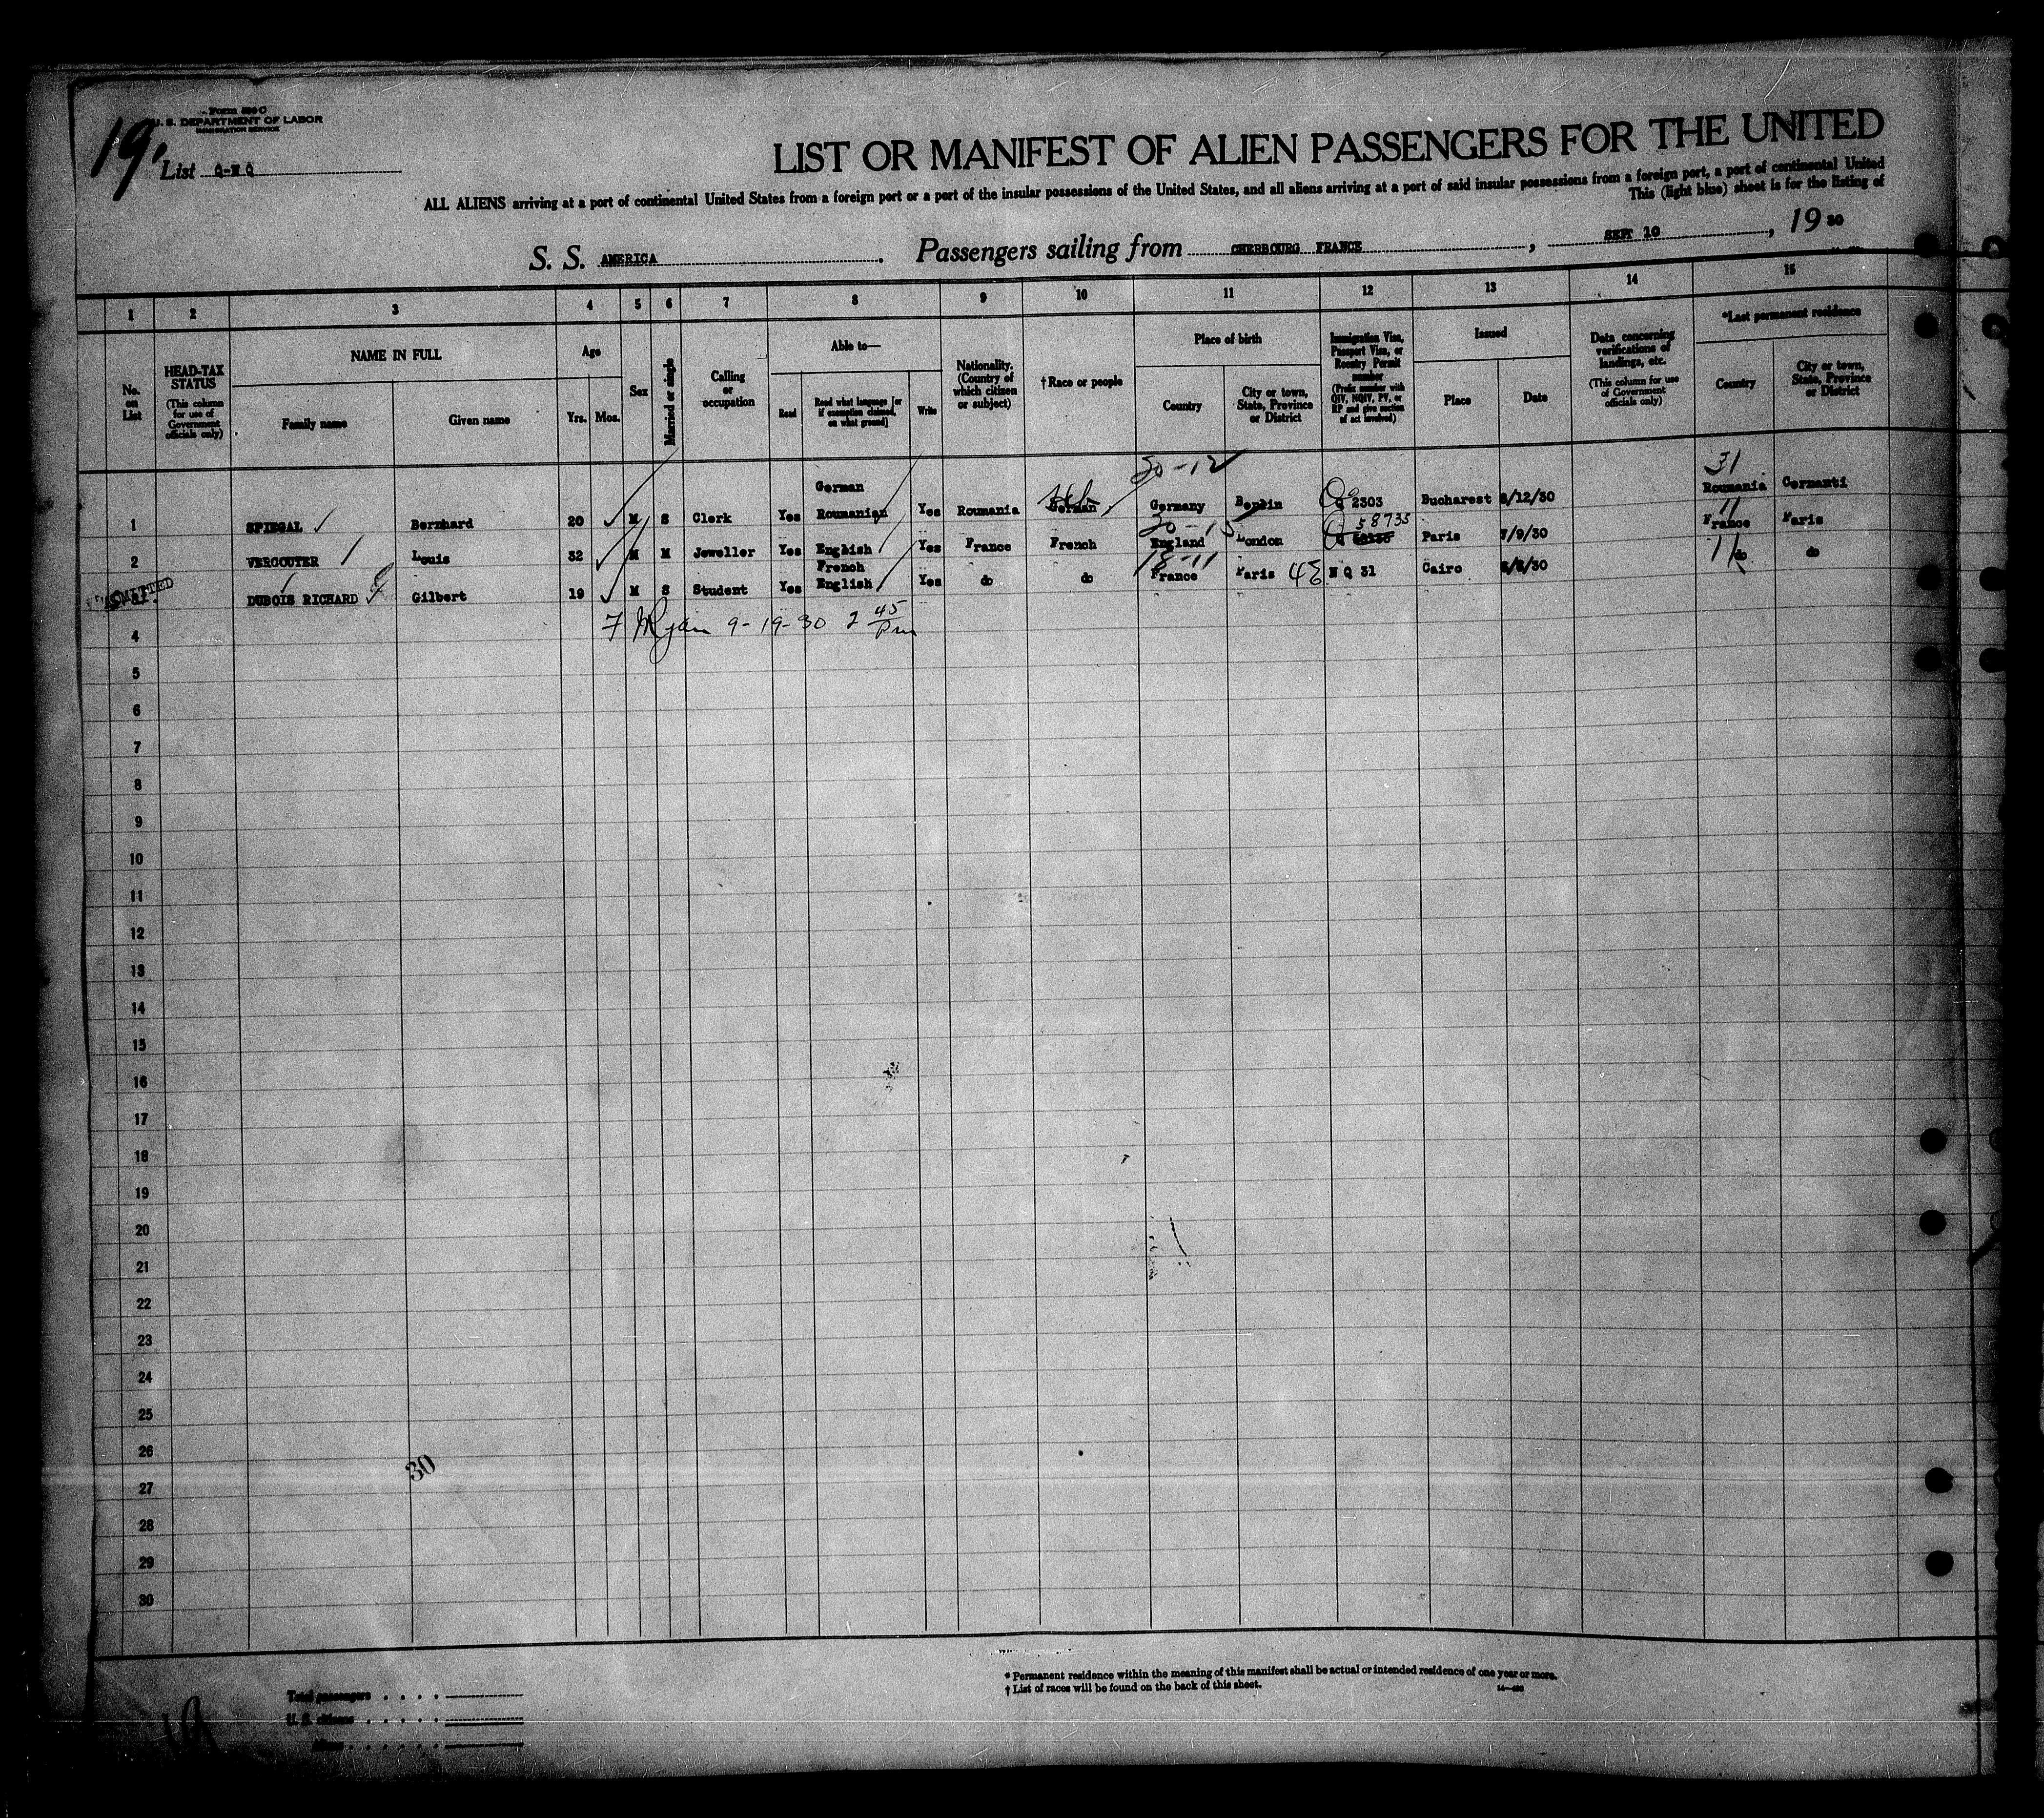 Form 500 C
U. S. DEPARTMENT OF LABOR
IMMIGRATION SERVICE
19
List Q-N Q
LIST OR MANIFEST OF ALIEN PASSENGERS FOR THE UNITED
ALL ALIENS arriving at a port of continental United States from a foreign port or a port of the insular possessions of the United States, and all aliens arriving at a port of said insular possessions from a foreign port, a port of continental United
This (light blue) sheet is for the listing of
S. S. AMERICA. Passengers sailing from CHERBOURG FRANCE, SEPT 10, 19 30
1 2 3 4 5 6 7 8 9 10 11 12 13 14 15
No. on List
HEAD-TAX STATUS
(This column for use of Government officials only)
NAME IN FULL
Family name
Given name
Age
Yrs. Mos.
Sex
Married or single
Calling or occupation
Able to—
Read
Read what language [or if exemption claimed, on what ground]
Write
Nationality. (Country of which citizen or subject)
†Race or people
Place of birth
Country
City or town, State, Province or District
Immigration Visa, Passport Visa, or Reentry Permit number
(Prefix number with QIV, NQIV, PV, or RP and give section of act involved)
Issued
Place
Date
Data concerning verifications of landings, etc.
(This column for use of Government officials only)
*Last permanent residence
Country
City or town, State, Province or District
30-12
31
German
1 SPIEGAL Bernhard 20 M S Clerk Yes Roumanian Yes Roumania German Germany Berlin Q 2303 Bucharest 8/12/30 Roumania Cernauti
30-15 58735 11
2 VERCOUTER Louis 32 M M Jeweller Yes English Yes France French England London Q Paris 7/9/30 France Paris
French
18-11
11
ADMITTED
DUBOIS RICHARD Gilbert 19 M S Student Yes English Yes do do France Paris 4E N Q 31 Cairo /30 do do
Ryan 9-19-30 2 45 pm
4
5
6
7
8
9
10
11
12
13
14
15
16
17
18
19
20
21
22
23
24
25
26
30
27
28
29
30
* Permanent residence within the meaning of this manifest shall be actual or intended residence of one year or more.
† List of races will be found on the back of this sheet.
Total passengers
U. S. citizens
Aliens